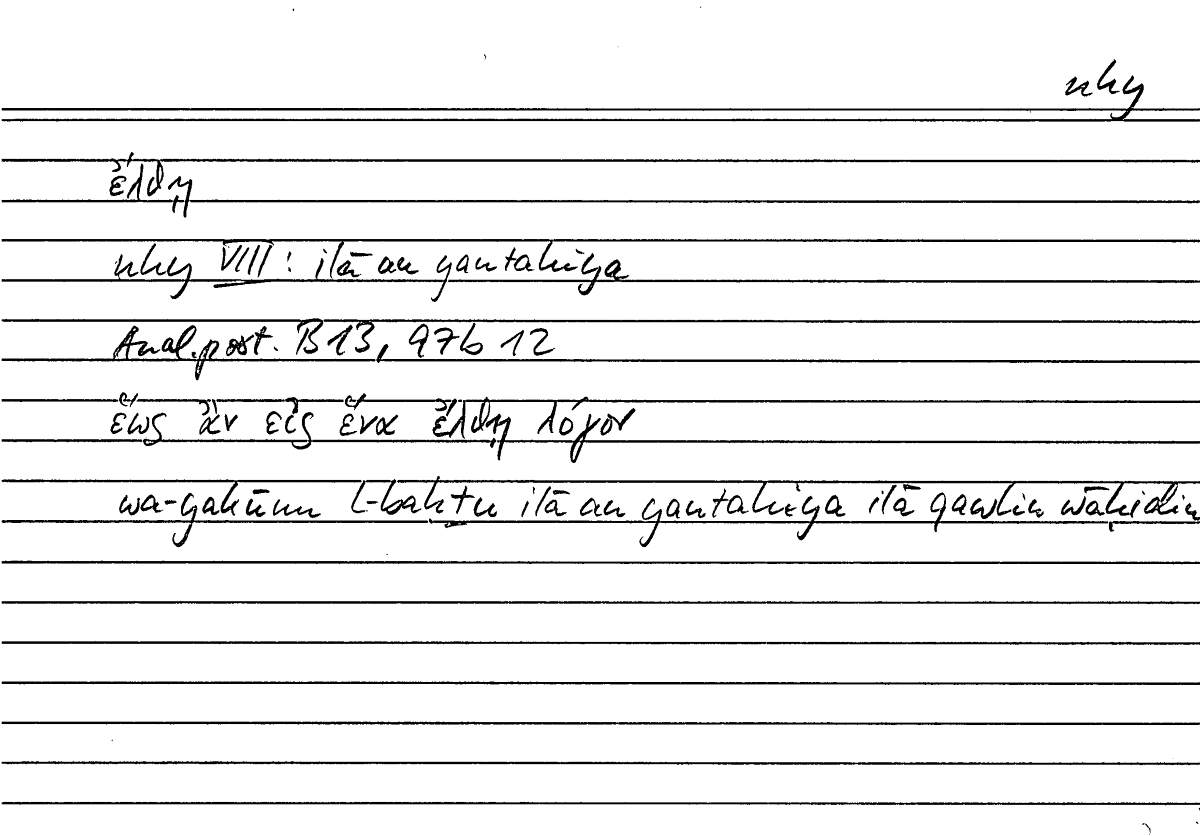 nhy
ἔλθῃ
nhy VIII: ilā an yantahiya
Anal. post. B 13, 97b 12
ἕως ἂν εἰς ἕνα ἔλθῃ λόγον
wa-yakūnu l-baḥṯu ilā an yantahiya ilā qawlin wāḥidin